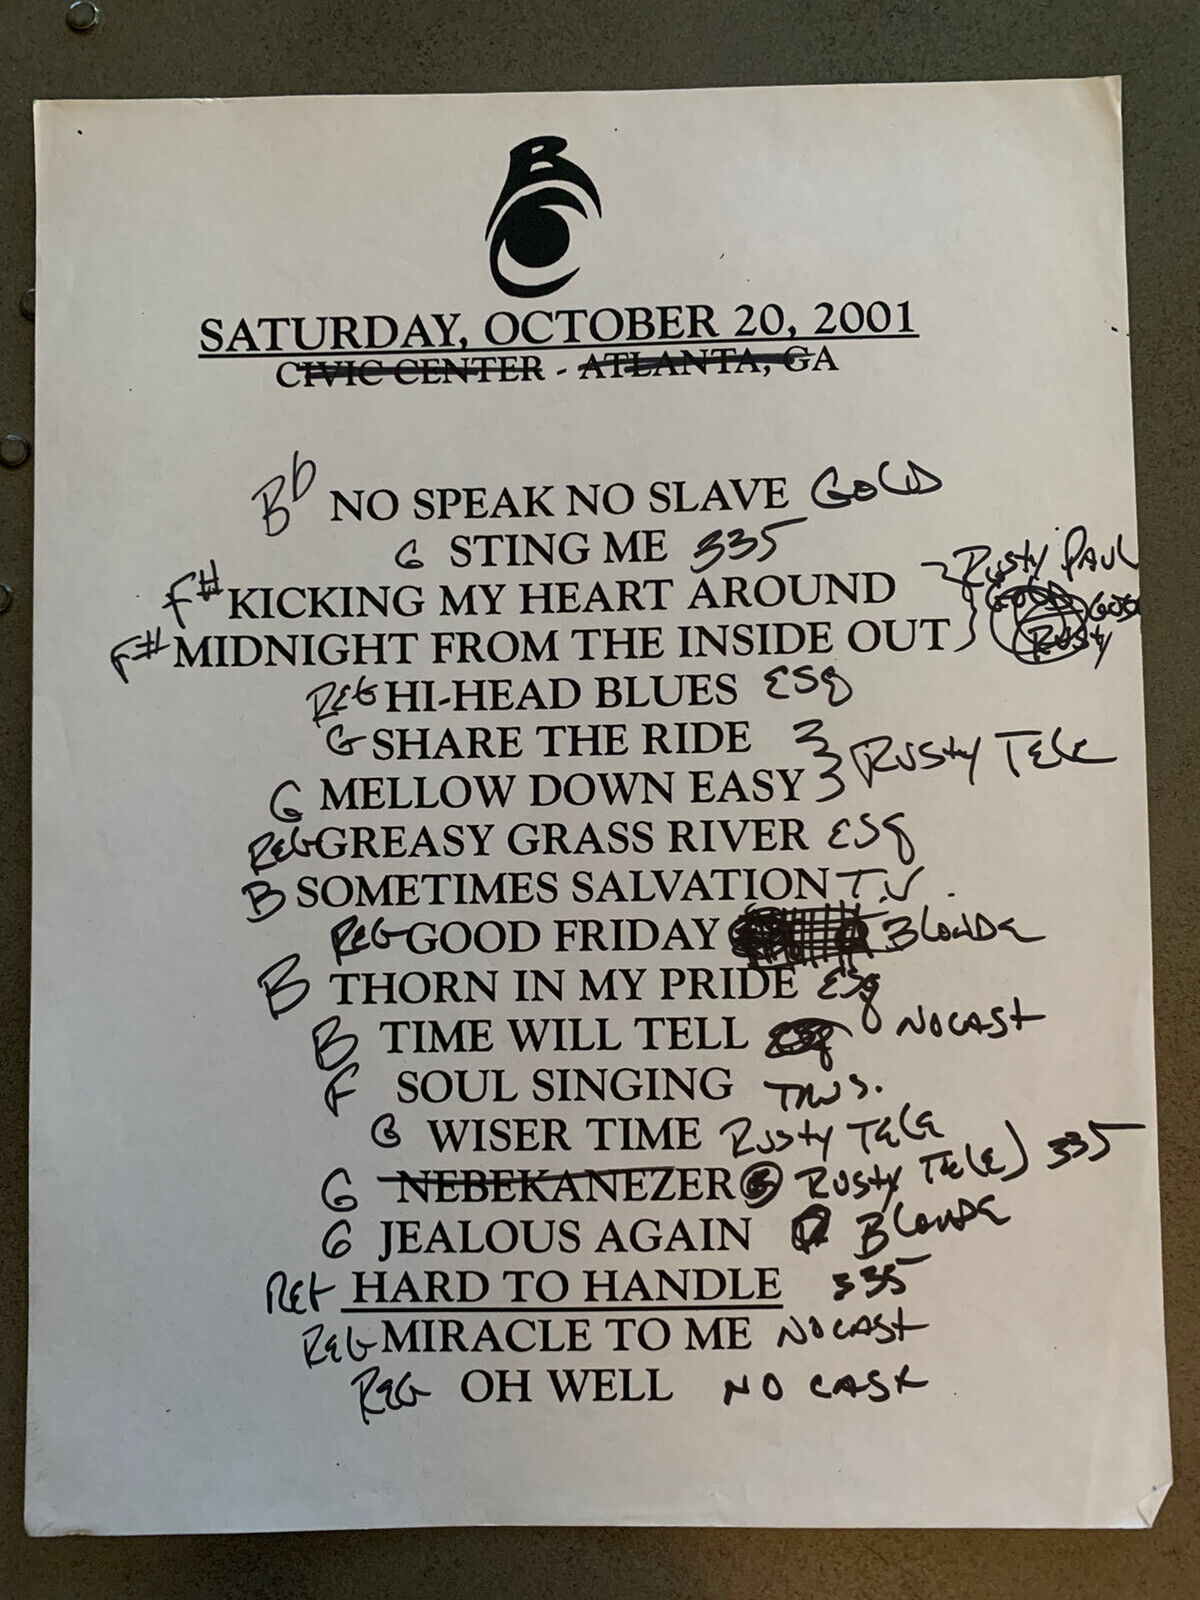 BC
SATURDAY, OCTOBER 20, 2001
CIVIC CENTER - ATLANTA, GA
Bb NO SPEAK NO SLAVE GOLD
G STING ME 335
F# KICKING MY HEART AROUND } RUSTY PAUL
F# MIDNIGHT FROM THE INSIDE OUT } RUSTY
REG HI-HEAD BLUES ESQ
G SHARE THE RIDE } RUSTY TELE
G MELLOW DOWN EASY }
REG GREASY GRASS RIVER ESQ
B SOMETIMES SALVATION T.V.
REG GOOD FRIDAY BLONDE
B THORN IN MY PRIDE ESQ
B TIME WILL TELL ESQ NOCAST
F SOUL SINGING
G WISER TIME RUSTY TELE
G NEBEKANEZER RUSTY TELE) 335
G JEALOUS AGAIN BLONDE
REG HARD TO HANDLE 335
REG MIRACLE TO ME NOCAST
REG OH WELL NO CASK